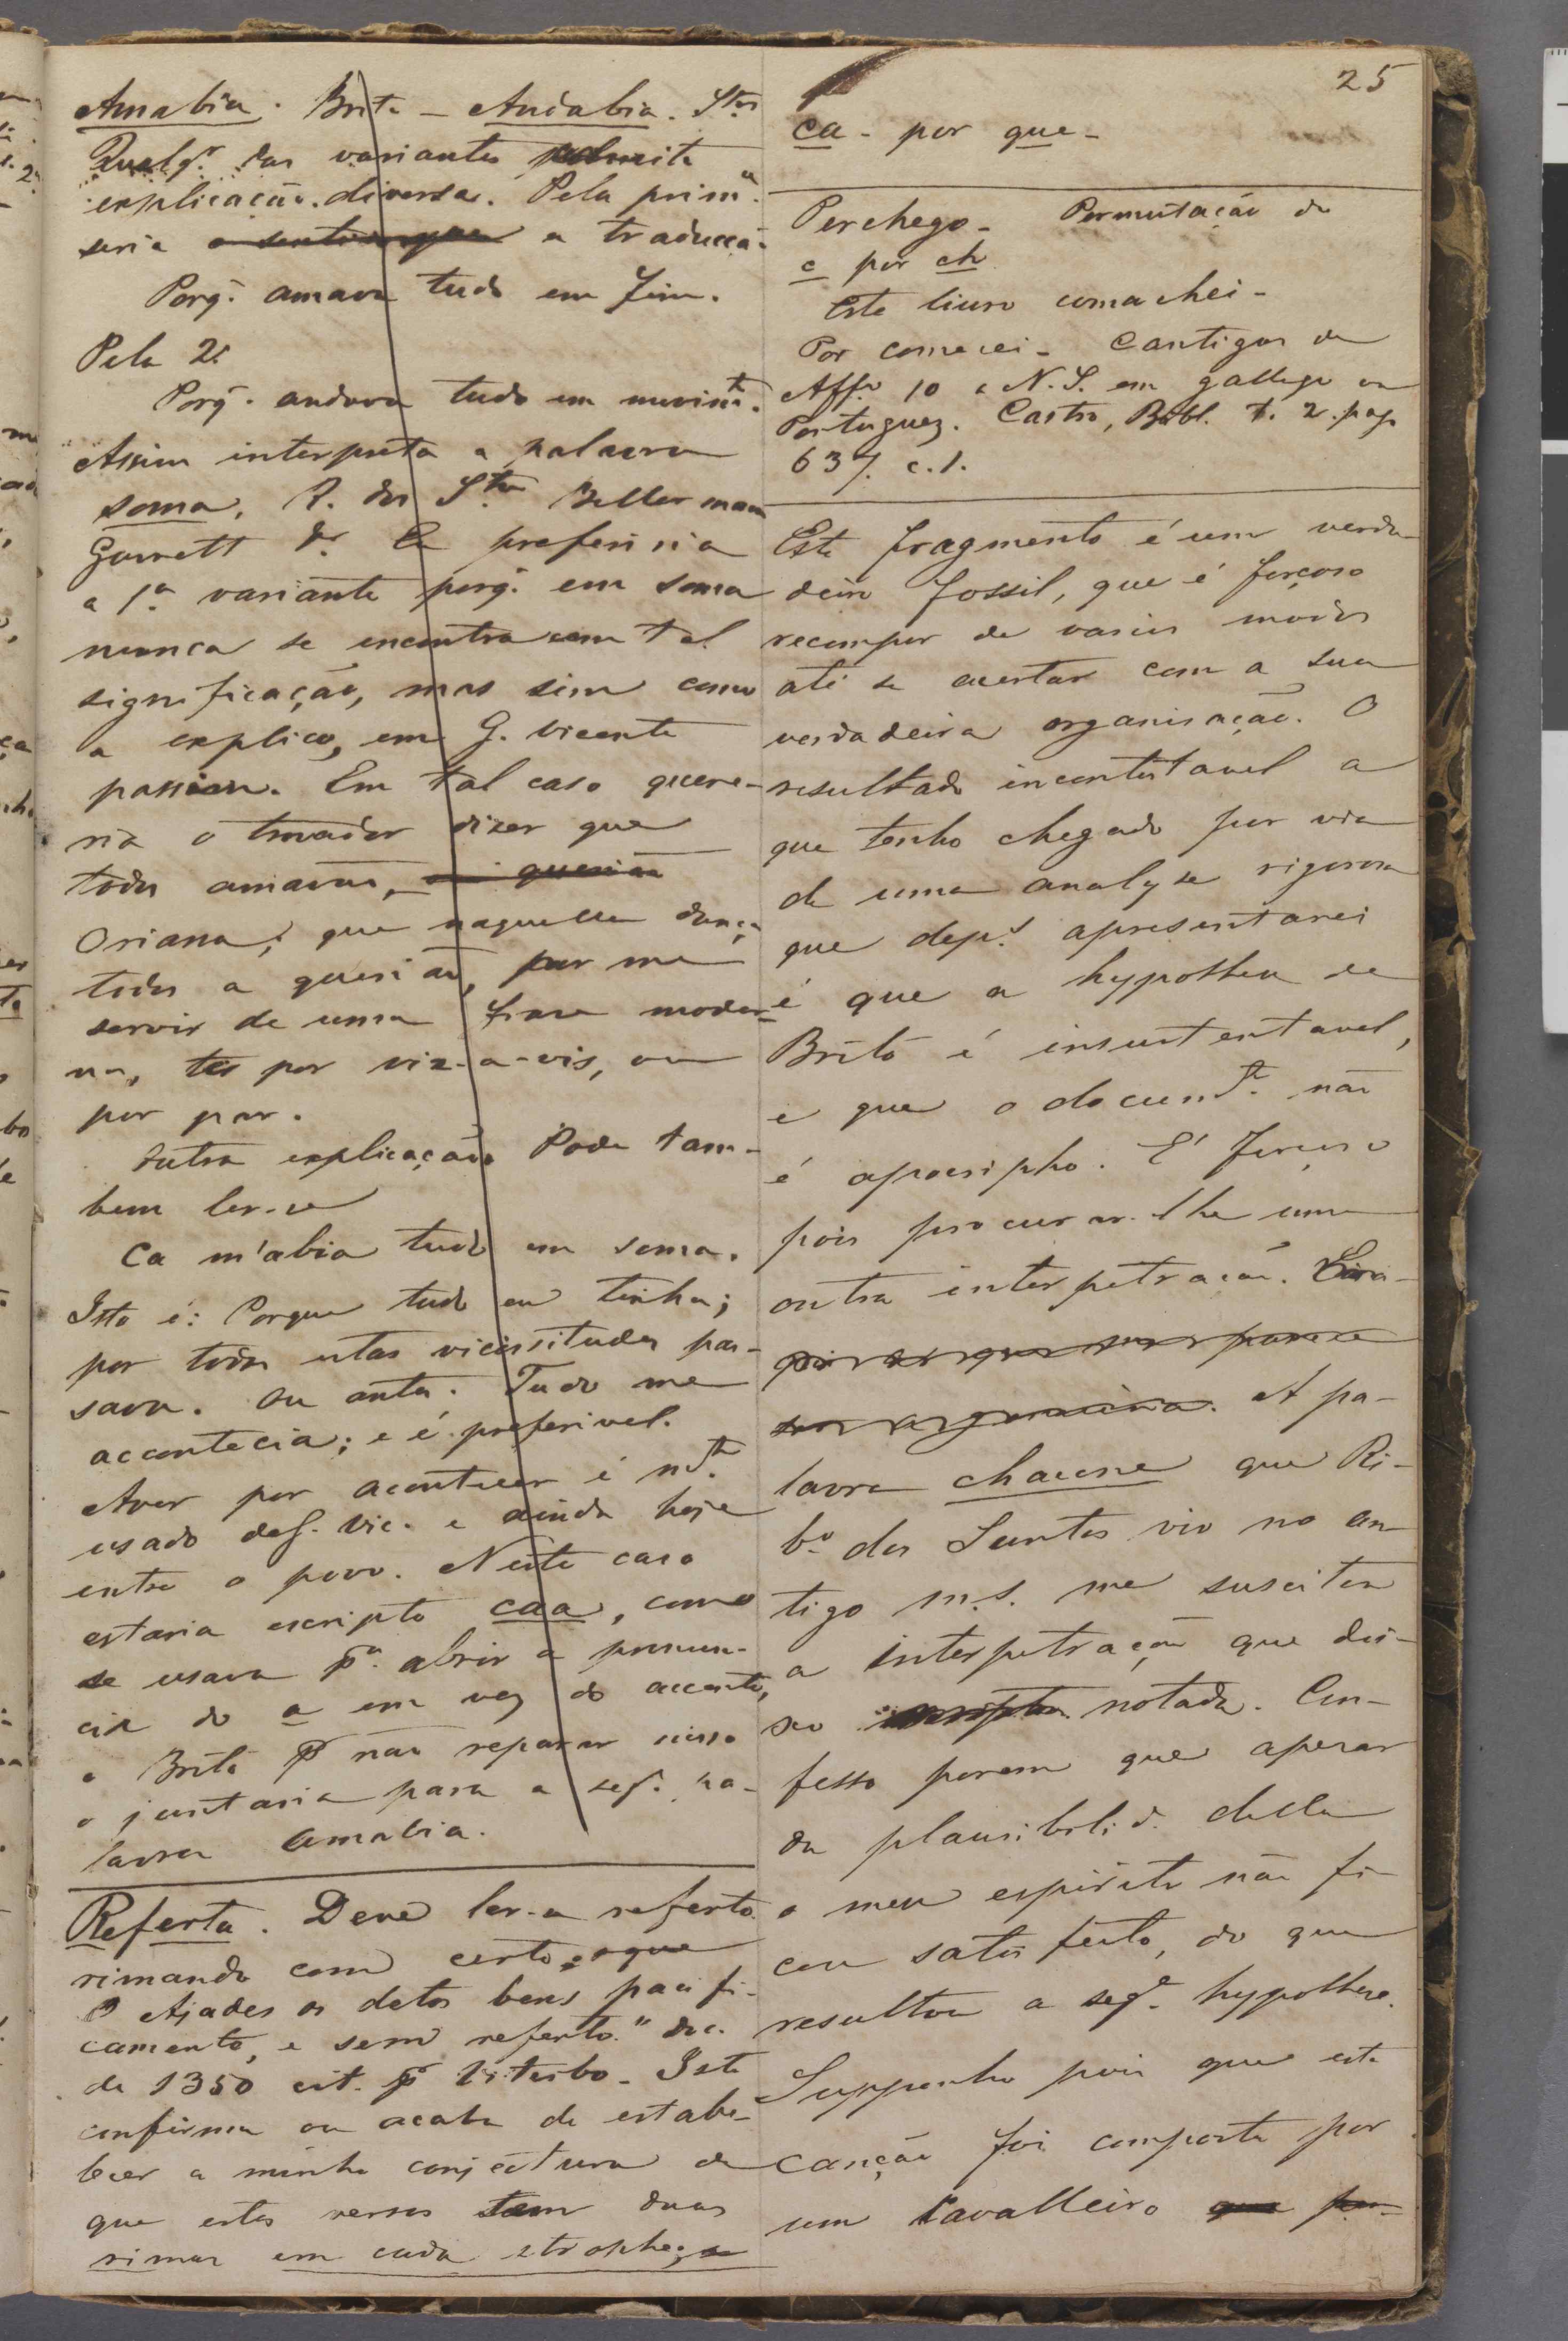 25
Amabia. Brito - Andabia. Stos
Qualqr. das variantes admite
explicação diversa. Pela prim.a
seria a traducçã.
Porq. amava tudo em fim.
Pela 2.
Porq. andava tudo em movimto.
Assim interpreta a palavra
soma, R. dos Stos Bellermann
Garrett &. Eu preferiria
a 1.a variante porq. em soma
nunca se encontra com tal
significação, mas sim como
a explico, em G. Vicente
passim. Em tal caso quere-
ria o trovador dizer que
todos amavão,
Oriana; que naquella dança
todos a querião, por me
servir de uma frase moder-
na, por viz-a-vis, ou
por par.
Outra explicação. Pode tam-
bem ler-se
Ca m'abia tudo em soma.
Isto é: Porque tudo eu tinha;
por todas estas vicissitudes pas-
sava. Ou antes. Tudo me
accontecia; e é preferivel.
Aver por acontecer é mto.
usado de G. Vic. e ainda hoje
entre o povo. Neste caso
estaria escripto caa, como
se usava pa. abrir a pronun-
cia do a em vez do accento,
e Brito por não reparar nisso
o juntaria para a seg. pa-
lavra amabia.
Referta. Deve ler-se referto
rimando com certo, e que
Ajades os detos bens pacifi-
camento, e sem referto." doc.
de 1350 cit. por Viterbo. Isto
confirma ou acaba de estabe-
lecer a minha conjectura de
que estes versos tem duas
rimas em cada strophe;
ca - por que -
Perchego - Permutação de
c por ch
Este livro comachei -
Por comecei - Cantigas de
Affo 10 a N.S. em gallego ou
Portuguez. Castro, Bibl. t. 2. pag.
637. c.1.
Este fragmento é um verda-
deiro fossil, que é forçoso
recompor de varios modos
até se acertar com a sua
verdadeira organisação. O
resultado incontestavel a
que tenho chegado por via
de uma analyse rigorosa
que deps. apresentarei
é que a hypothese de
Brito é insustentavel,
e que o documto. não
é apocripho. É forçoso
pois procurar-lhe uma
outra interpetração.
A pa-
lavra chacone que Ri-
bo. dos Santos vio no an-
tigo m.s. me suscitou
a interpetração que dei-
xo notada. Con-
fesso porem que apesar
da plausibilid. della
o meu espirito não fi-
cou satisfeito, do que
resultou a sega. hypothese.
Supponho pois que esta
canção foi composta por
um Cavalleiro